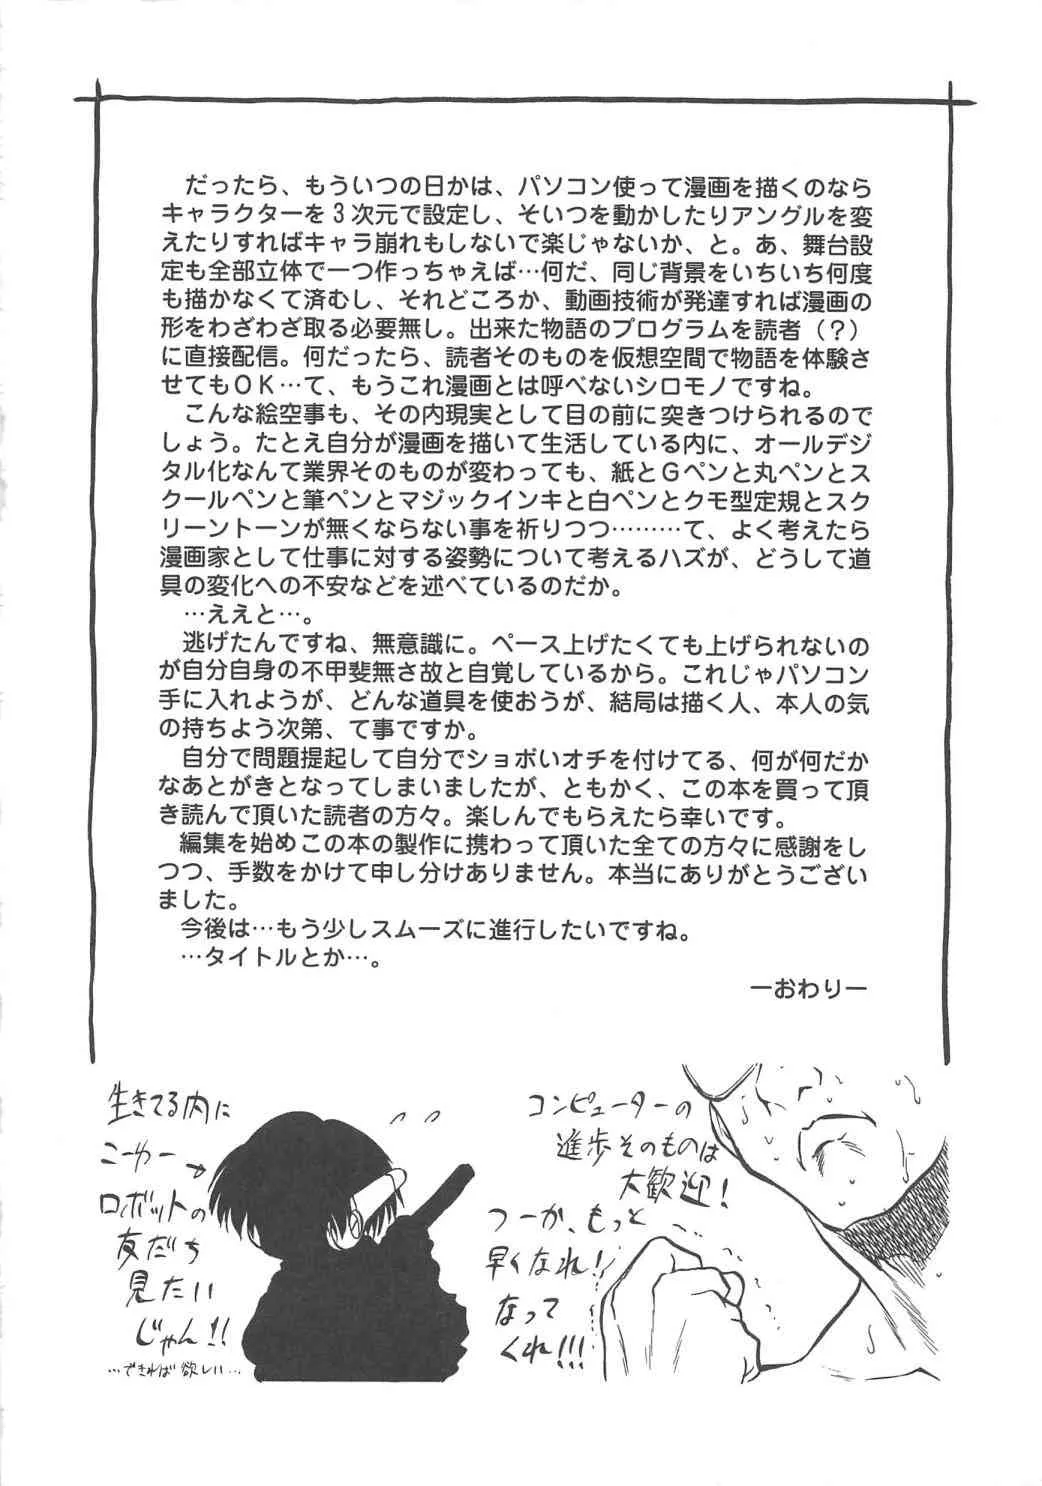 だったら、もういつの日かは、パソコン使って漫画を描くのなら
キャラクターを３次元で設定し、そいつを動かしたりアングルを変
えたりすればキャラ崩れもしないで楽じゃないか、と。あ、舞台設
定も全部立体で一つ作っちゃえば…何だ、同じ背景をいちいち何度
も描かなくて済むし、それどころか、動画技術が発達すれば漫画の
形をわざわざ取る必要無し。出来た物語のプログラムを読者（？）
に直接配信。何だったら、読者そのものを仮想空間で物語を体験さ
せてもＯＫ…て、もうこれ漫画とは呼べないシロモノですね。
こんな絵空事も、その内現実として目の前に突きつけられるので
しょう。たとえ自分が漫画を描いて生活している内に、オールデジ
タル化なんて業界そのものが変わっても、紙とＧペンと丸ペンとス
クールペンと筆ペンとマジックインキと白ペンとクモ型定規とスク
リーントーンが無くならない事を祈りつつ………て、よく考えたら
漫画家として仕事に対する姿勢について考えるハズが、どうして道
具の変化への不安などを述べているのだか。
…ええと…。
逃げたんですね、無意識に。ペース上げたくても上げられないの
が自分自身の不甲斐無さ故と自覚しているから。これじゃパソコン
手に入れようが、どんな道具を使おうが、結局は描く人、本人の気
の持ちよう次第、て事ですか。
自分で問題提起して自分でショボいオチを付けてる、何が何だか
なあとがきとなってしまいましたが、ともかく、この本を買って頂
き読んで頂いた読者の方々。楽しんでもらえたら幸いです。
編集を始めこの本の製作に携わって頂いた全ての方々に感謝をし
つつ、手数をかけて申し分けありません。本当にありがとうござい
ました。
今後は…もう少しスムーズに進行したいですね。
…タイトルとか…。
ーおわりー
生きてる内に
こーゆー
ロボットの
友だち
見たい
じゃん!!
…できれば欲しい…
コンピューターの
進歩そのものは
大歓迎!
つーか、もっと
早くなれ!
なって
くれ!!!